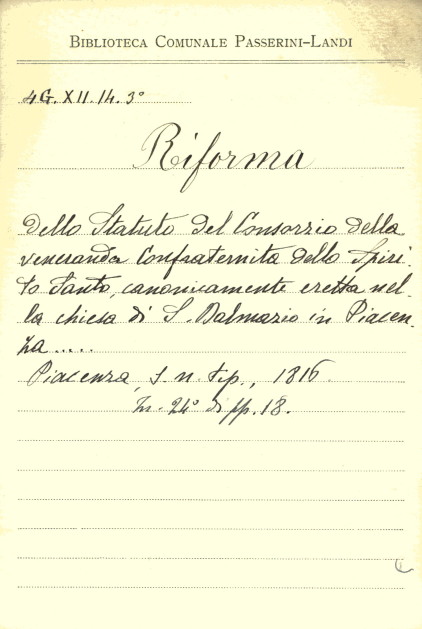 BIBLIOTECA COMUNALE PASSERINI-LANDI
4G. XII. 14. 3°
Riforma
dello Statuto del Consorzio della
veneranda Confraternita dello Spiri-
to Santo, canonicamente eretta nel-
la chiesa di S. Dalmazio in Piacen-
za.....
Piacenza, s. n. tip., 1816.
In-24° di pp. 18.